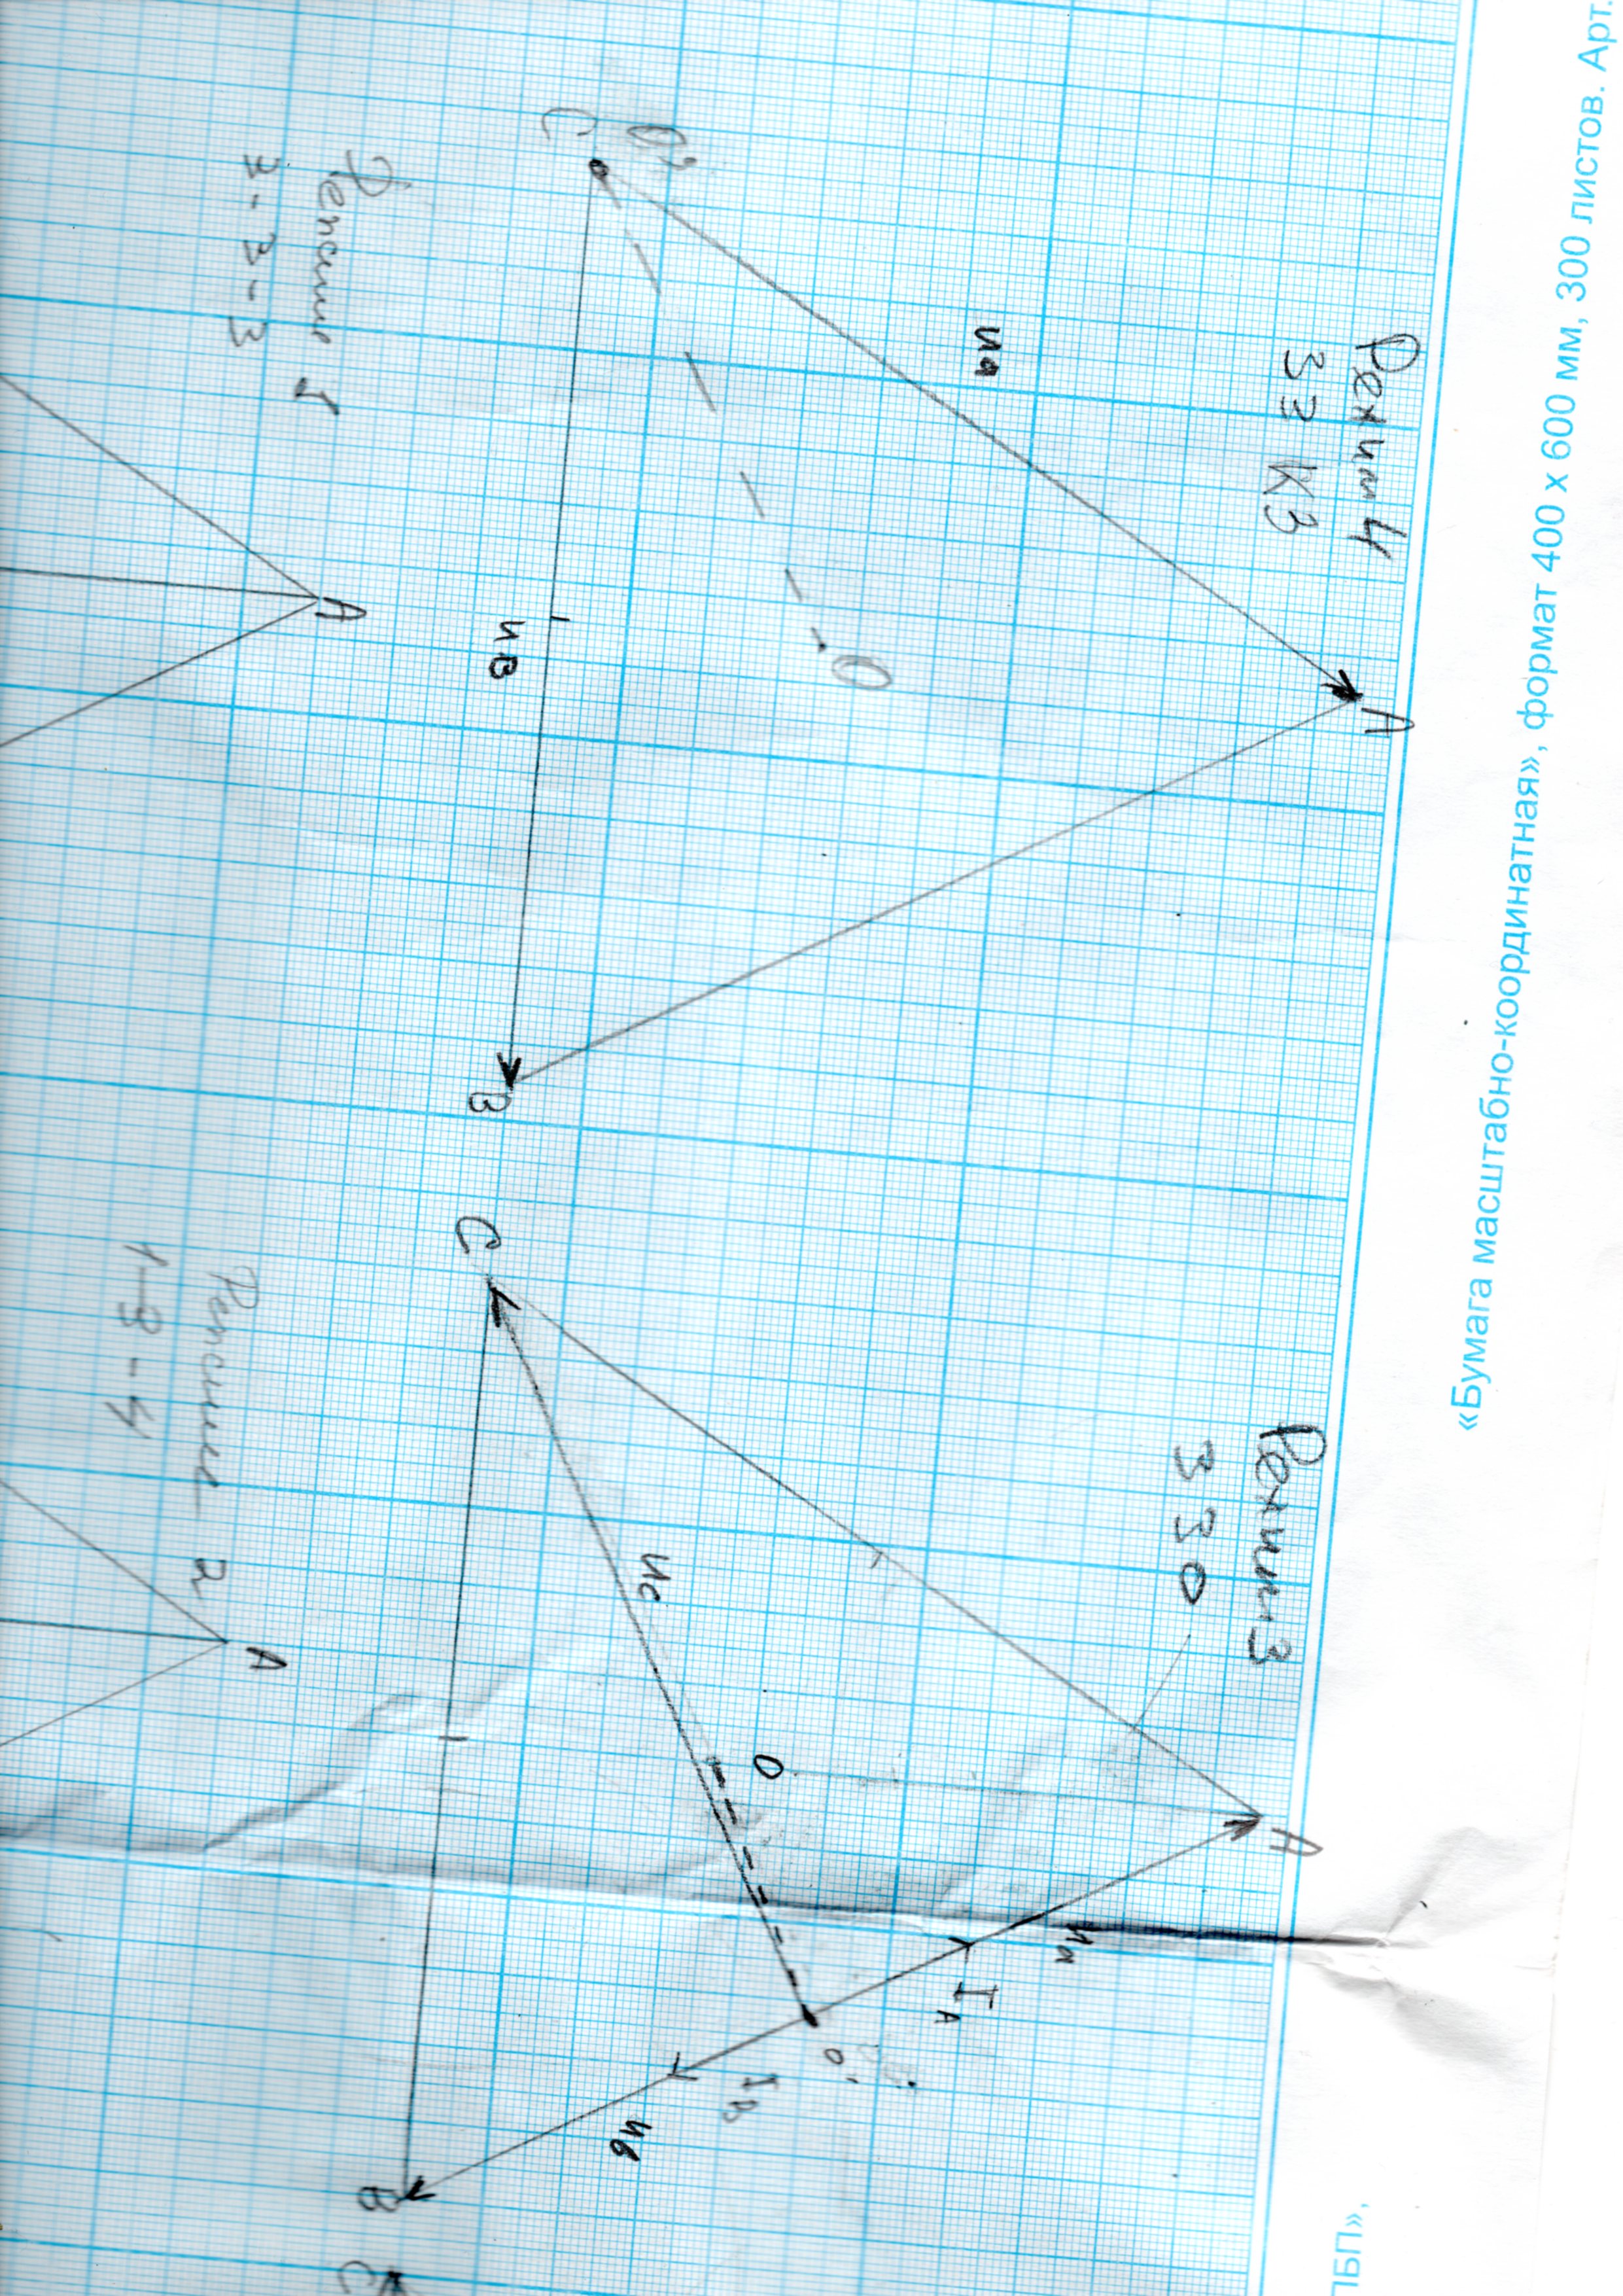 «Бумага масштабно-координатная», формат 400 х 600 мм, 300 листов. Арт.
ЛБП»,
Режим 4
33 КЗ
A
Uа
O
O'
C
UB
B
Режим 3
3 3 0
A
Uа
I A
O'
O
I B
Uс
Uв
C
B
C
Режим 1
3-3-3
A
Режим 2
1-3-4
A